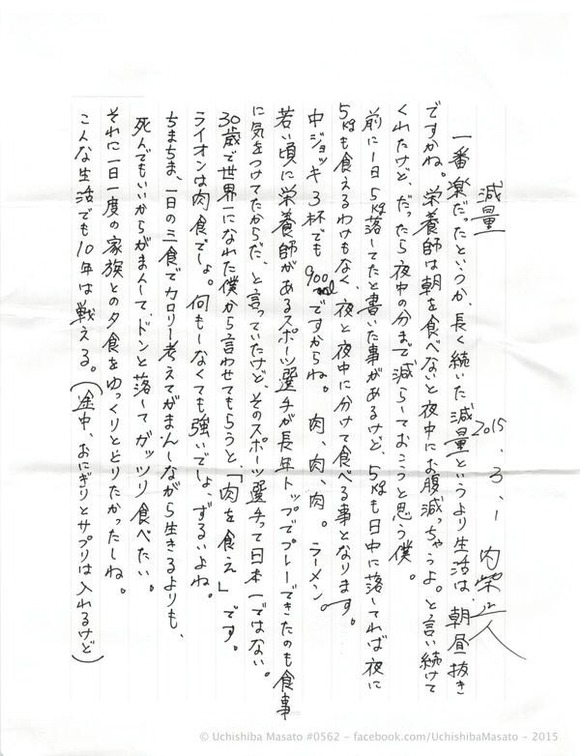 減量
2015.3.1 内柴正人
一番楽だったというか、長く続いた減量というより生活は、朝昼抜き
ですかね。栄養師は朝を食べないと夜中にお腹減っちゃうよ。と言い続けて
くれたけど、だったら夜中の分まで減らしておこうと思う僕。
前に1日5kg落してたと書いた事があるけど、5kgも日中に落してれば夜に
5kgも食えるわけもなく、夜と夜中に分けて食べる事となります。
中ジョッキ3杯でも900mlですからね。肉、肉、肉。ラーメン。
若い頃に栄養師があるスポーツ選手が長年トップでプレーできたのも食事
に気をつけてたからだ、と言っていたけど、そのスポーツ選手って日本一ではない。
30歳で世界一になれた僕から言わせてもらうと、「肉を食え」です。
ライオンは肉食でしょ。何もしなくても強いでしょ、ずるいよね。
ちまちま、一日の三食でカロリー考えてがまんしながら生きるよりも、
死んでもいいからがまんして、ドンと落してガッツリ食べたい。
それに一日一度の家族との夕食をゆっくりとどりたかったしね。
こんな生活でも10年は戦える。(途中、おにぎりとサプリは入れるけど)
© Uchishiba Masato #0562 – facebook.com/UchishibaMasato – 2015